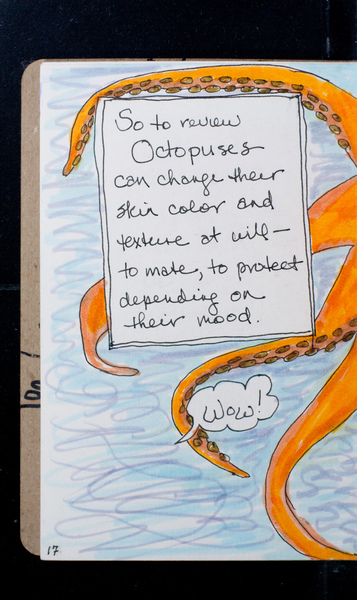 So to review
Octopuses
can change their
skin color and
texture at will—
to mate, to protect
depending on
their mood.
Wow!
17